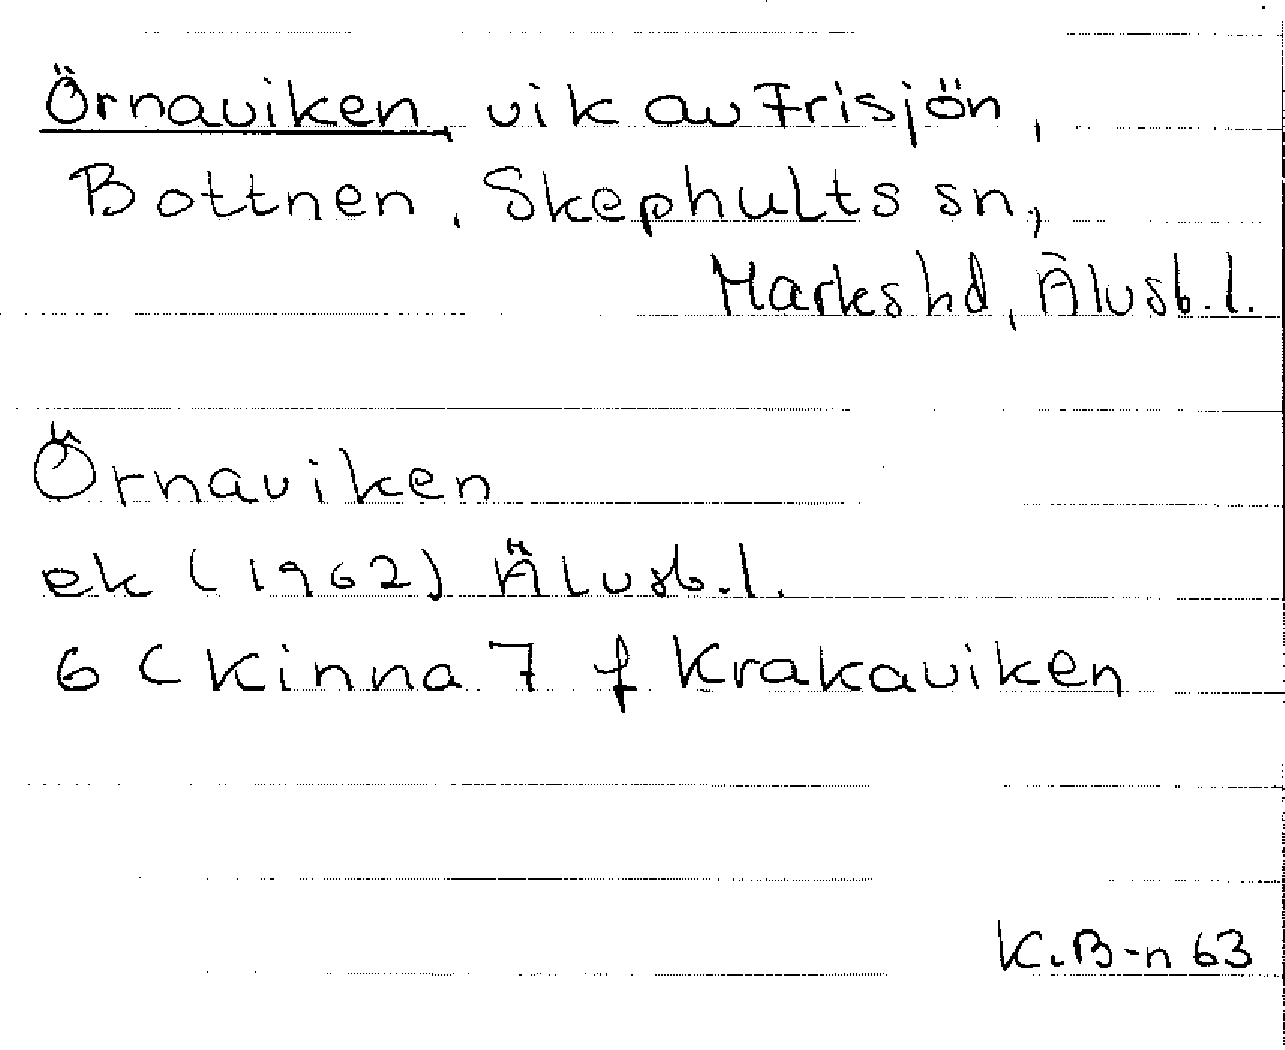 Örnaviken, vik av Frisjön,
Bottnen, Skephults sn,
Marks hd, Älvsb. l.
Örnaviken
ek (1962) Älvsb. l.
6 C Kinna 7 f Krakaviken
K.B-n 63